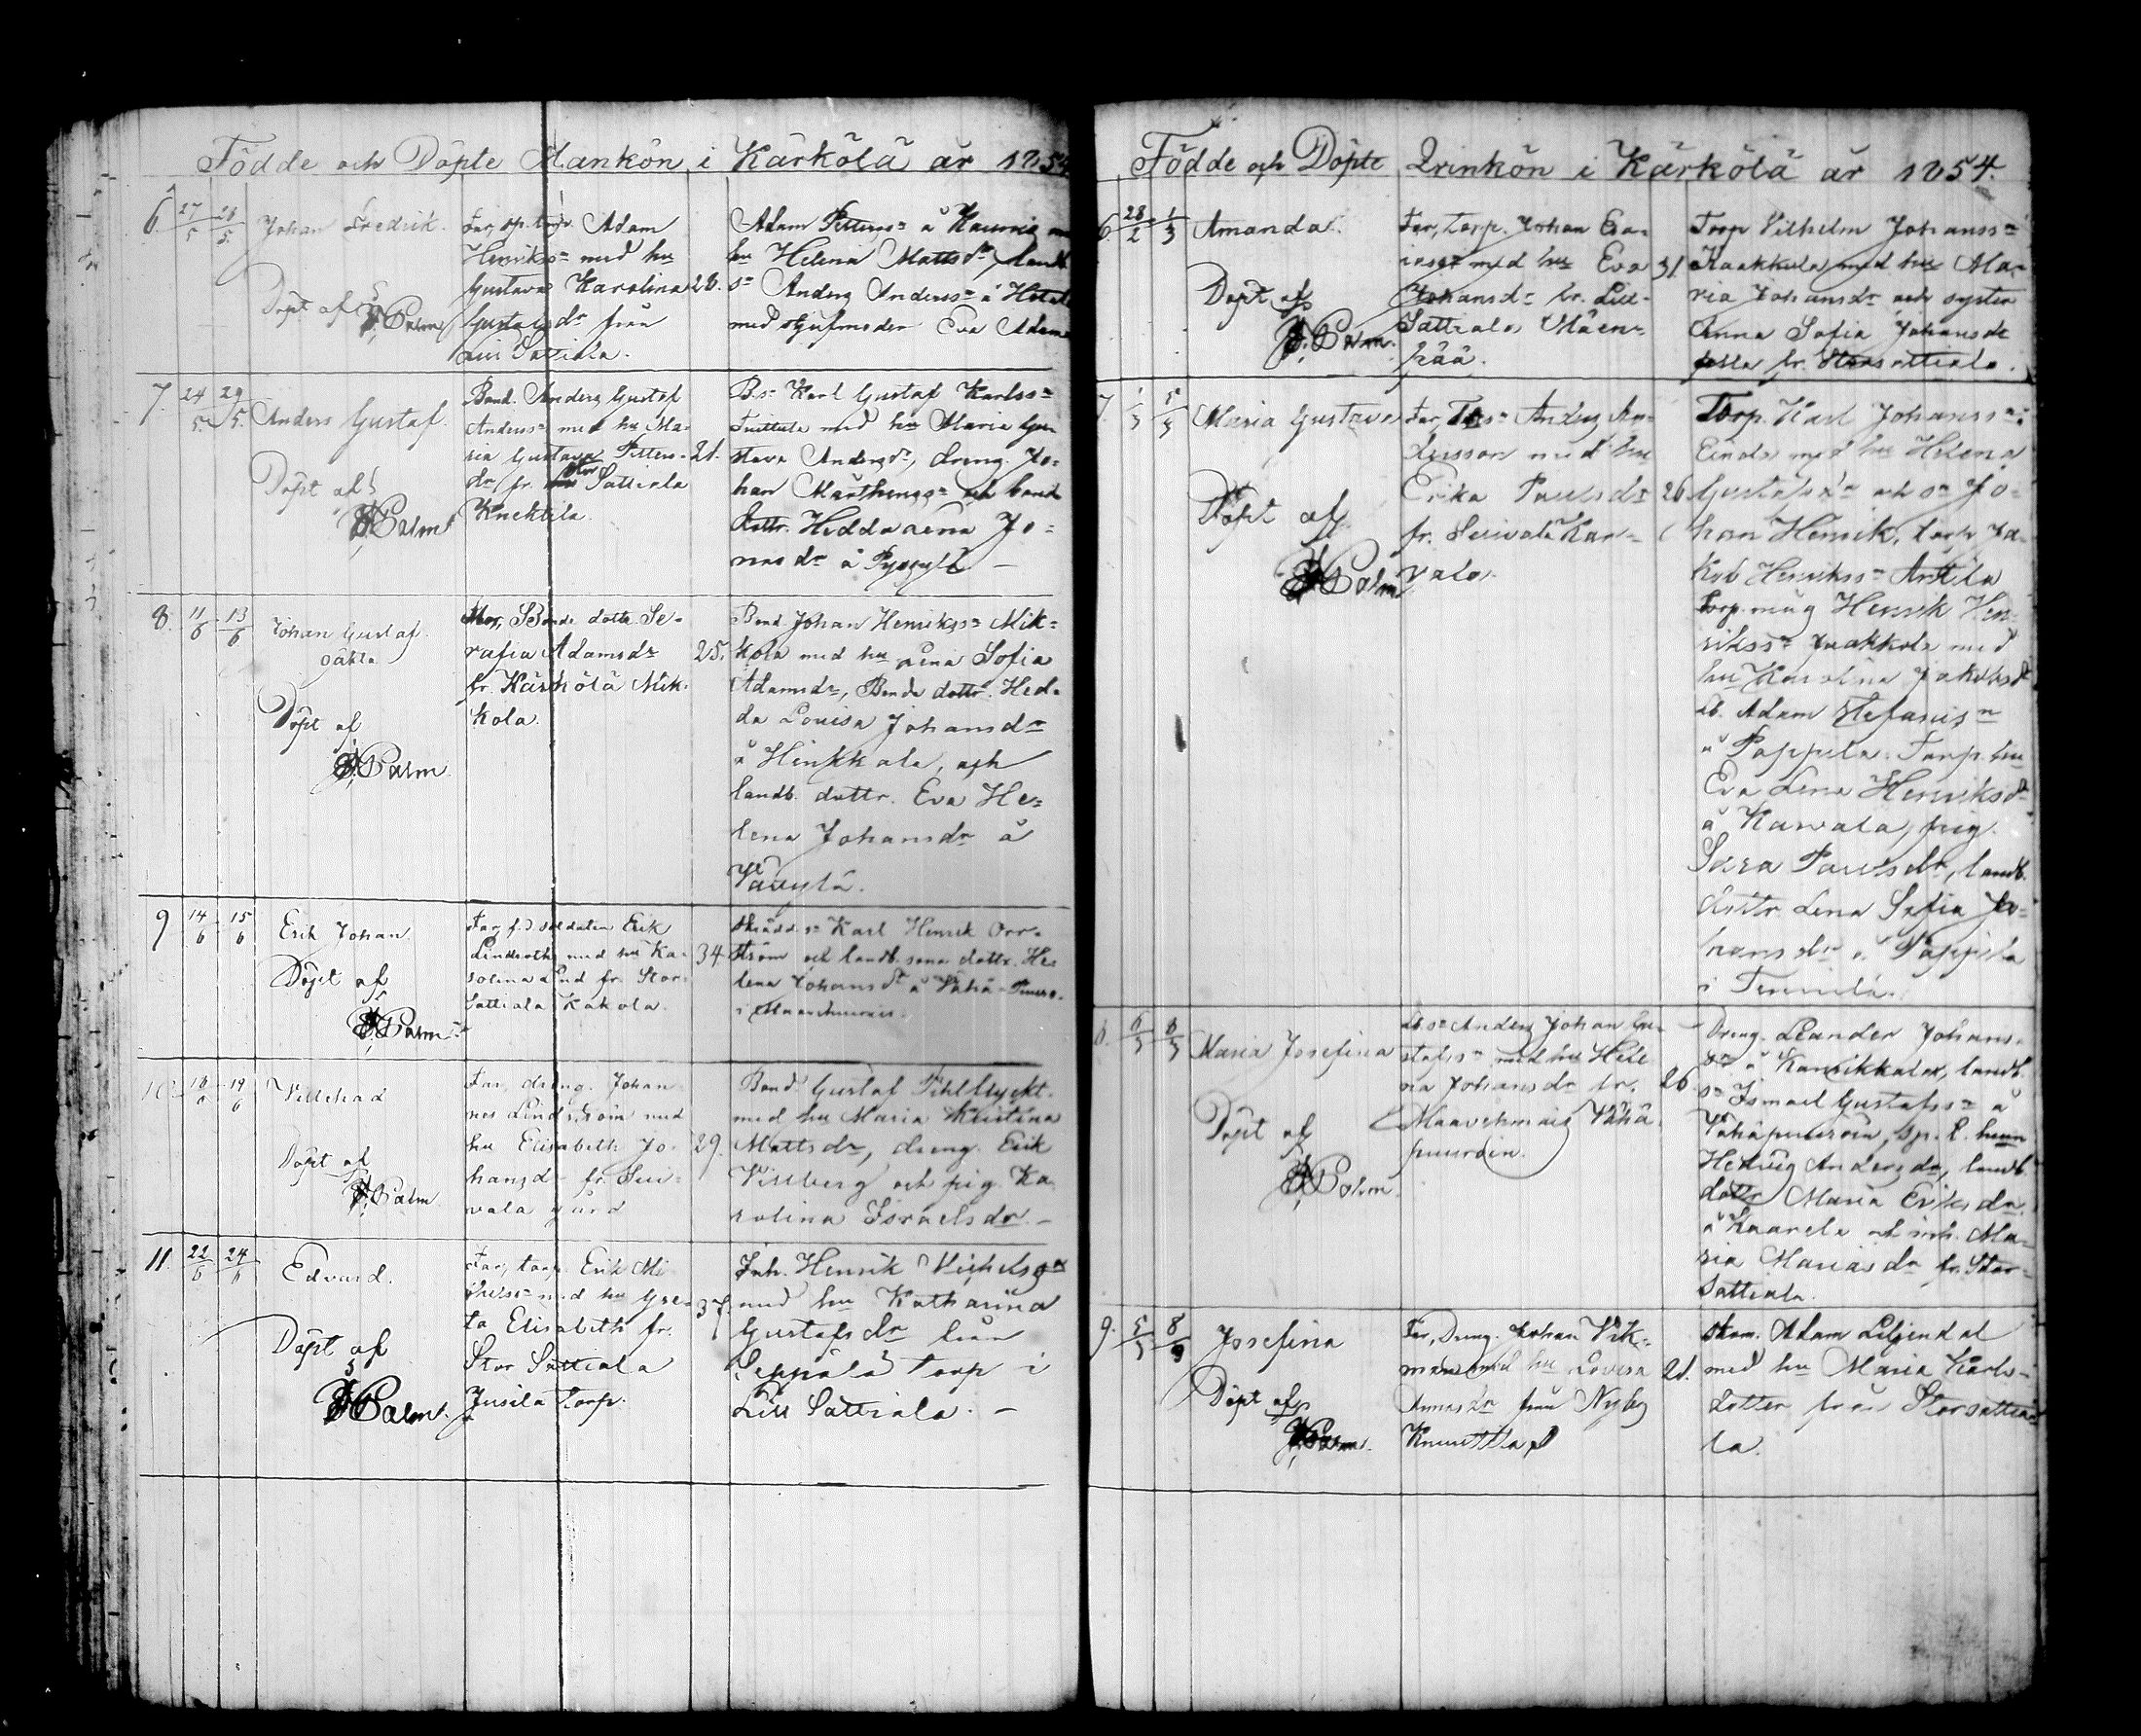 Födde och Döpte Mankön i Kärkölä år 1854
6. 27/5 28/5. Johan Fredrik.
Döpt af
Palm
Far, sp. torp. Adam
Henrikss:n med hu
Gustava Karolina 28.
Gustafsdr från
Lill Sattiala.
Adam Petterss:n å
hu Helena Mattsdr, landb.
s:n Anders Anderss:n å
med styfmoder Eva Adams
7. 24/5. 29/5. Anders Gustaf.
Döpt af
Palm
Bond. Anders Gustaf
Anderss:n med hu Ma-
ria Gustava Petters- 21.
dr, fr. Stor Sattiala
Knektila.
B.s:n Karl Gustaf Karlss:n
med hu Maria Gu-
stava Andersdr, dreng. Jo-
han Mårthenss:n och bonde
dottr. Hedda Lena Jo-
nasdr å
8. 11/6 13/6 Johan Gustaf.
oäkta
Döpt af
Palm
Mor, Bonde dottr Se-
rafia Adamsdr 25.
fr. Kärkölä Mik-
kola.
Bond. Johan Henrikss:n Mik-
kola med hu Lena Sofia
Adamsdr, Bonde dottr. Hed-
da Lovisa Johansdr
å Hinkkala, och
landb. dottr. Eva He-
lena Johansdr å
9 14/6 15/6 Erik Johan.
Döpt af
Palm
Far, f.d. soldaten Erik
Lindroth med hu Ka- 34.
rolina Lind fr. Stor
Sattiala Kakola.
Skrädd. s:n Karl Henrik Orr-
ström och landb. sons dottr. He-
lena Johansdr å Vähä-
i
10. 18/6 19/6 Villehad
Döpt af
Palm
Far, dreng. Johan-
nes Lindström med
hu Elisabeth Jo- 29.
hansd. fr. Sui-
vala gård
Bond. Gustaf Pihlflyckt.
med hu Maria Kristina
Mattsdr, dreng. Erik
Villberg och pig. Ka-
rolina Israelsdr. -
11. 22/6 24/6 Edvard.
Döpt af
Palm.
Far, torp. Erik Mi-
med hu Gre- 37.
ta Elisabeth fr.
Stor Sattiala
Jusila torp.
Inh. Henrik Michelss:n
med hu Katharina
Gustafsdr från
Seppälä torp i
Lill Sattiala. -
Födde och Döpte Qvinkön i Kärkölä år 1854.
6. 28/2 1/3 Amanda.
Döpt af
Palm.
Far, torp. Johan
med hu Eva 31.
Johansdr fr. Lill-
Sattiala Mäen-
pää.
Torp Vilhelm Johanss:n
Kaakkola med hu Ma-
ria Johansdr och syster
Anna Sofia Johansdr
fr. Storsattiala.
7. 1/3 5/3 Maria Gustava
Döpt af
Palm
Far, Anders An-
dersson med hu
Erika Paulsdr 26
fr. Suivala Kar-
vala.
Torp. Karl Johanss:n
med hu Helena
Gustafsdr och s:n Jo-
han Henrik, torp Ja-
kob Henrikss:n Anttila
torp. måg Henrik Hen-
rikss:n med
hu Karolina Jakobsdr
Adam Stefanss:n
å Pappila. Torp. hu
Eva Lena Henriksdr
å Karvala, pig.
Sara Paulsdr, landb.
dottr. Lena Sofia Jo-
hansdr å Pappila
i
8. 6/3 8/3 Maria Josefina
Döpt af
Palm.
Lb. s:n Anders Johan Gu-
stafss:n med hu Hele
na Johansdr fr. 26.
Vähä
Dreng. Leander Johans-
s:n å landb.
s:n Ismael Gustafss:n å
sp. t. hu
Hedvig Andersdr, landb.
dottr Maria Eriksdr
å Kaarela och inh. Ma-
ria Mariasdr fr. Stor-
Sattiala.
9. 5/3 8/3 Josefina
Döpt af
Palm.
Far, Dreng. Johan Vik-
man med hu Lovisa 21.
från Nyby
Adam Liljendal
med hu Maria Karls-
dotter från Storsattia-
la.